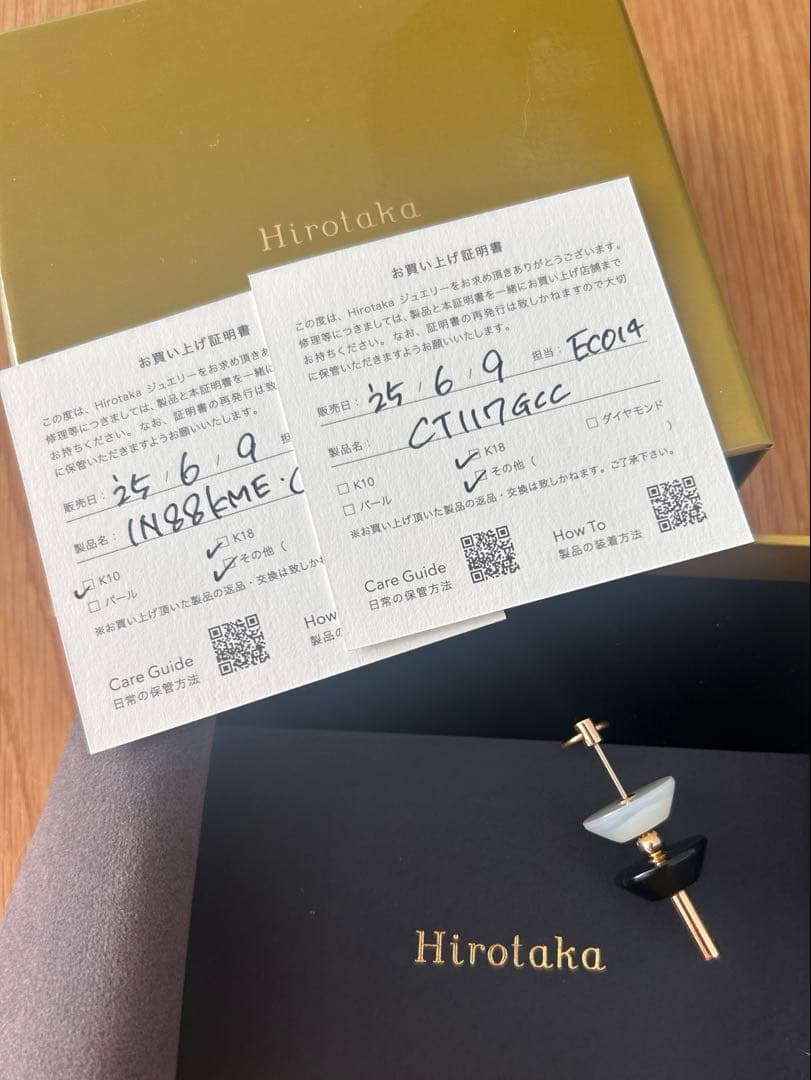 Hirotaka
お買い上げ証明書
この度は、Hirotaka ジュエリーをお求め頂きありがとうございます。
修理等につきましては、製品と本証明書を一緒にお買い上げ店舗まで
お持ちください。なお、証明書の再発行は致しかねますので大切
に保管いただきますようお願いいたします。
販売日： '25 / 6 / 9 担当： ECO14
製品名： CT117GCC
□ K10 ☑ K18 □ ダイヤモンド
□ パール ☑ その他（ ）
※お買い上げ頂いた製品の返品・交換は致しかねます。ご了承下さい。
Care Guide
日常の保管方法
How To
製品の装着方法
お買い上げ証明書
この度は、Hirotaka ジュエリーをお求め頂きあ
修理等につきましては、製品と本証明書を一緒に
お持ちください。なお、証明書の再発行は致
に保管いただきますようお願いいたします。
販売日： '25 / 6 / 9 担
製品名： IN88KME.
☑ K10 ☑ K18
□ パール ☑ その他（
※お買い上げ頂いた製品の返品・交換は致しかね
Care Guide
日常の保管方法
How
製品の
Hirotaka